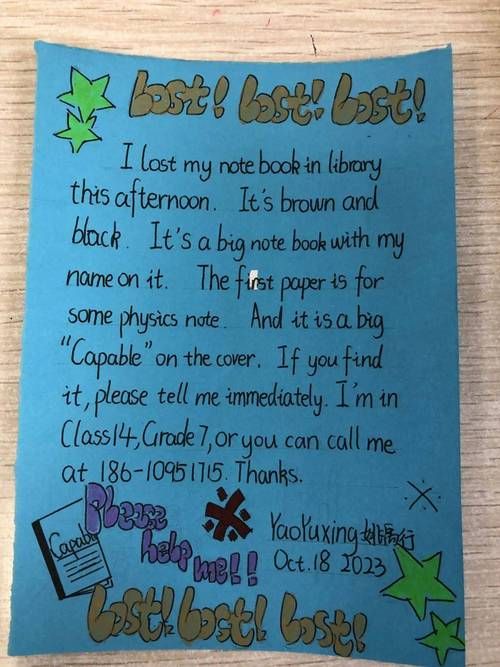 Lost! Lost! Lost!
I lost my note book in library
this afternoon. It's brown and
black. It's a big note book with my
name on it. The first paper is for
some physics note. And it is a big
"Capable" on the cover. If you find
it, please tell me immediately. I'm in
Class14, Grade7, or you can call me
at 186-10951715. Thanks.
Please
help
me!!
Capable
YaoYuxing 姚禹行
Oct. 18 2023
Lost! Lost! Lost!